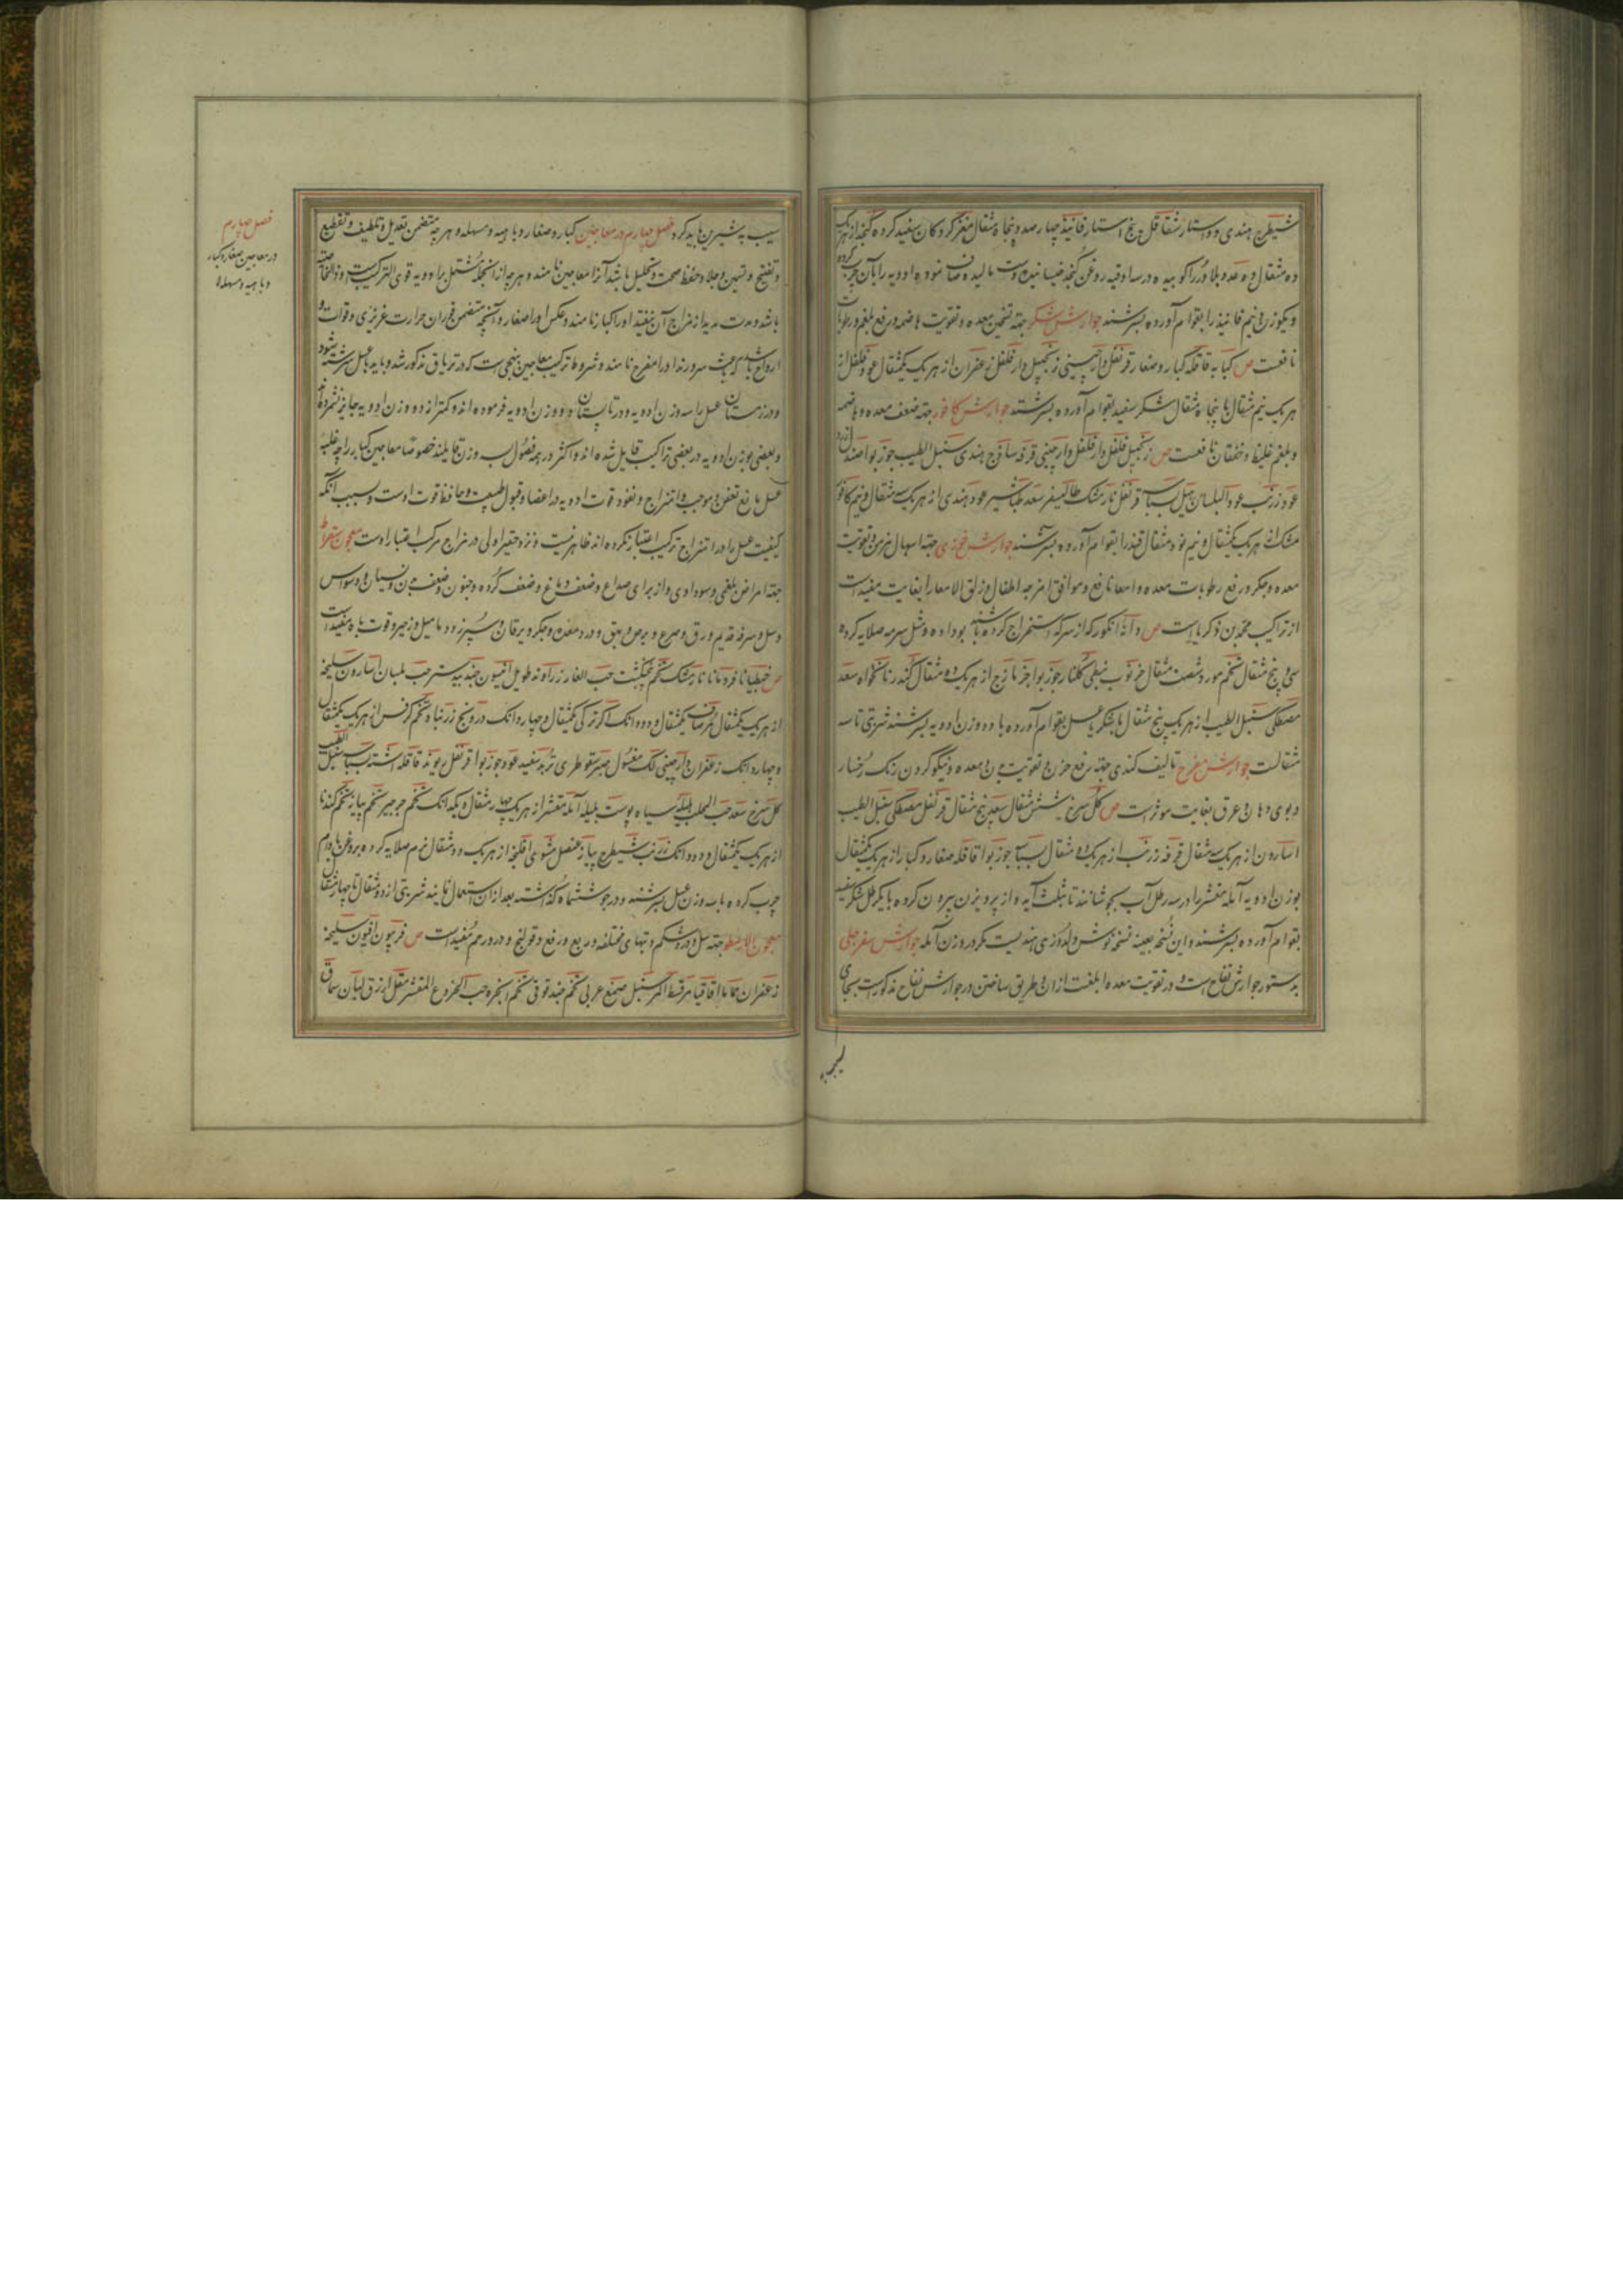 شیطرج هندی دو استار شقاقل پنج استار فانیذ چهار صد و پنجاه مثقال مغز کردکان سفید کرده کنجد از هر یک
ده مثقال و ده عدد بلادور را کوبیده در سه اوقیه روغن کنجد خیسانیده دست مالیده و صاف نموده ادویه را بآن چرب کرده
و بکوزن و نیم فانیذ را بقوام آورده بسرشند جوارش شکر جهته تسخین معده و تقویت هاضمه و رفع بلغم و رطوبات
نافعست ص کبابه قاقله کبار و صغار قرنفل دارچینی زنجبیل دارفلفل زعفران از هر یک یکمثقال عود فلفل از
هر یک نیم مثقال با پنجاه مثقال شکر سفید بقوام آورده بسرشند جوارش کافور جهته ضعف معده و هاضمه
و بلغم غلیظ و خفقان نافعست ص زنجبیل فلفل دارفلفل دارچینی قرفه ساذج هندی سنبل الطیب جوزبوا صندل زرد
عود زرنب عود البلسان هیل بسباسه قرنفل نارمشک طالیسفر سعد طباشیر عود هندی از هر یک سه مثقال و نیم کافور
مشک از هر یک یکمثقال و نیم نود مثقال قند را بقوام آورده بسرشند جوارش خوزی جهته اسهال مزمن و تقویت
معده و جکر و رفع رطوبات معده و امعا نافع و موافق امزجه اطفال و زلق الامعا را بغایت مفید است
از تراکیب محمد بن ذکریا است ص دانه انکور که از سرکه استخراج کرده باشند بوداده و مثل سرمه صلایه کرده
سی و پنج مثقال تخم مورد شصت مثقال خرنوب نبطی کلنار جوزبوا جزمازج از هر یک ده مثقال کندر نانخواه سعد
مصطکی سنبل الطیب از هر یک پنج مثقال با شکر یا عسل بقوام آورده با دو وزن ادویه بسرشند شربتی تا سه
مثقالست جوارش مفرح تالیف کندی جهته رفع حزن و تقویت بدن و معده و نیکو کردن رنک رخسار
و بوی دهان و عرق بغایت موثر است ص کل سرخ شش مثقال سعد پنج مثقال قرنفل مصطکی سنبل الطیب
اسارون از هر یک سه مثقال قرفه زرنب از هر یک ده مثقال بسباسه جوزبوا قاقله صغار و کبار از هر یک یکمثقال
بوزن ادویه آمله مقشر را در سه رطل آب بجوشانند تا بثلث آید و از پرویزن بیرون کرده با یکرطل شکر سفید
بقوام آورده بسرشند و این نسخه بعینه نسخه نوش دلدوزی هندیست مکر در وزن آمله جوارش سفرجلی
بدستور جوارش تفاح است و در تقویت معده ابلغست از ان و طریق ساختن در جوارش تفاح مذکور است بجای
سیب به شیرین باید کرد فصل چهارم در معاجین کبار و صغار و باهیه و مسهله و هر چه متضمن تعدیل و تلطیف و تقطیع
و تفتیح و تلیین و جلا و حفظ صحت و تحلیل باشد آنرا معاجین نامند و هر چه از انجمله مشتمل بر ادویه قوی الترکیب و ذو الخاصیه
باشد و مدت مدید از مزاج آن نیفتد او را کبار نامند و عکس او را صغار و آنچه متضمن فوران حرارت غریزی و قوات و
ارواح باشد که باعث سرورند او را مفرح نامند و شروط ترکیب معاجین بنهجی است که در تریاق مذکور شد و باید با عسل سرشته شود
و در زمستان عسل را سه وزن ادویه و در تابستان دو وزن ادویه فرموده اند و کمتر از دو وزن ادویه جایز نشمرده اند
و بعضی بوزن ادویه در بعضی تراکیب قایل شده اند و اکثر در همه فصول بسه وزن قایلند خصوصا معاجین کبار را چه غلبه
عسل مانع تعفن و موجب امتزاج و نفوذ قوت ادویه در اعضا و قبول طبیعت و حافظ قوت اوست و بسبب انکه
کیفیت عسل را در امتزاج ترکیب اعتبار نکرده اند ظاهر نیست و نزد حقیر اولی در مزاج مرکب اعتبار اوست معجون سقراط
جهته امراض بلغمی و سوداوی و از برای صداع و ضعف دماغ و ضعف کرده و جنون و ضعف بدن و نسیان و وسواس
و سل و سرفه قدیم و رق و صرع و برص و بهق و درد معده و جکر و یرقان و سپرز و دمامیل و زحیر و قوت باه مفید است
ص جنطیانا قردمانا نارمشک تخم پنجنکشت حب الغار زراوند طویل افتیون جندبیدستر حب بلسان اسارون سلیخه
از هر یک یکمثقال مر صاف یکمثقال و دو دانک اکر ترکی یکمثقال و چهار دانک درونج زرنباد تخم کرفس از هر یک یکمثقال
و چهار دانک زعفران دارچینی لک مغسول صبر سقوطری تربد سفید عود جوزبوا قرنفل ریوند قاقله اشنه بسباسه سنبل الطیب
کل سرخ سعد حب المحلب هلیله سیاه پوست بلیله آمله مقشر از هر یک چهار مثقال و یکدانک تخم جرجیر تخم پیاز تخم کندنا
از هر یک یکمثقال و دو دانک زرنب شیطرج پیاز عنصل مشوی افلنجه از هر یک دو مثقال نرم صلایه کرده بروغن بادام
چرب کرده با سه وزن عسل بسرشند و در جو ششماه کذاشته بعد از ان استعمال نمایند شربتی از دو مثقال تا چهار مثقال
معجون ارسطو جهته سل و درد شکم و تبهای مختلفه و ربع و رفع و قولنج و درد رحم مفید است ص فربیون افیون سلیخه
زعفران حماما اقاقیا مر قسط اکر سنبل صمغ عربی تخم حندقوقی تخم انجره حب الخروع المقشر مقل ازرق لبان سماق
فصل چهارم
در معاجین صغار و کبار
و باهیه و مسهله